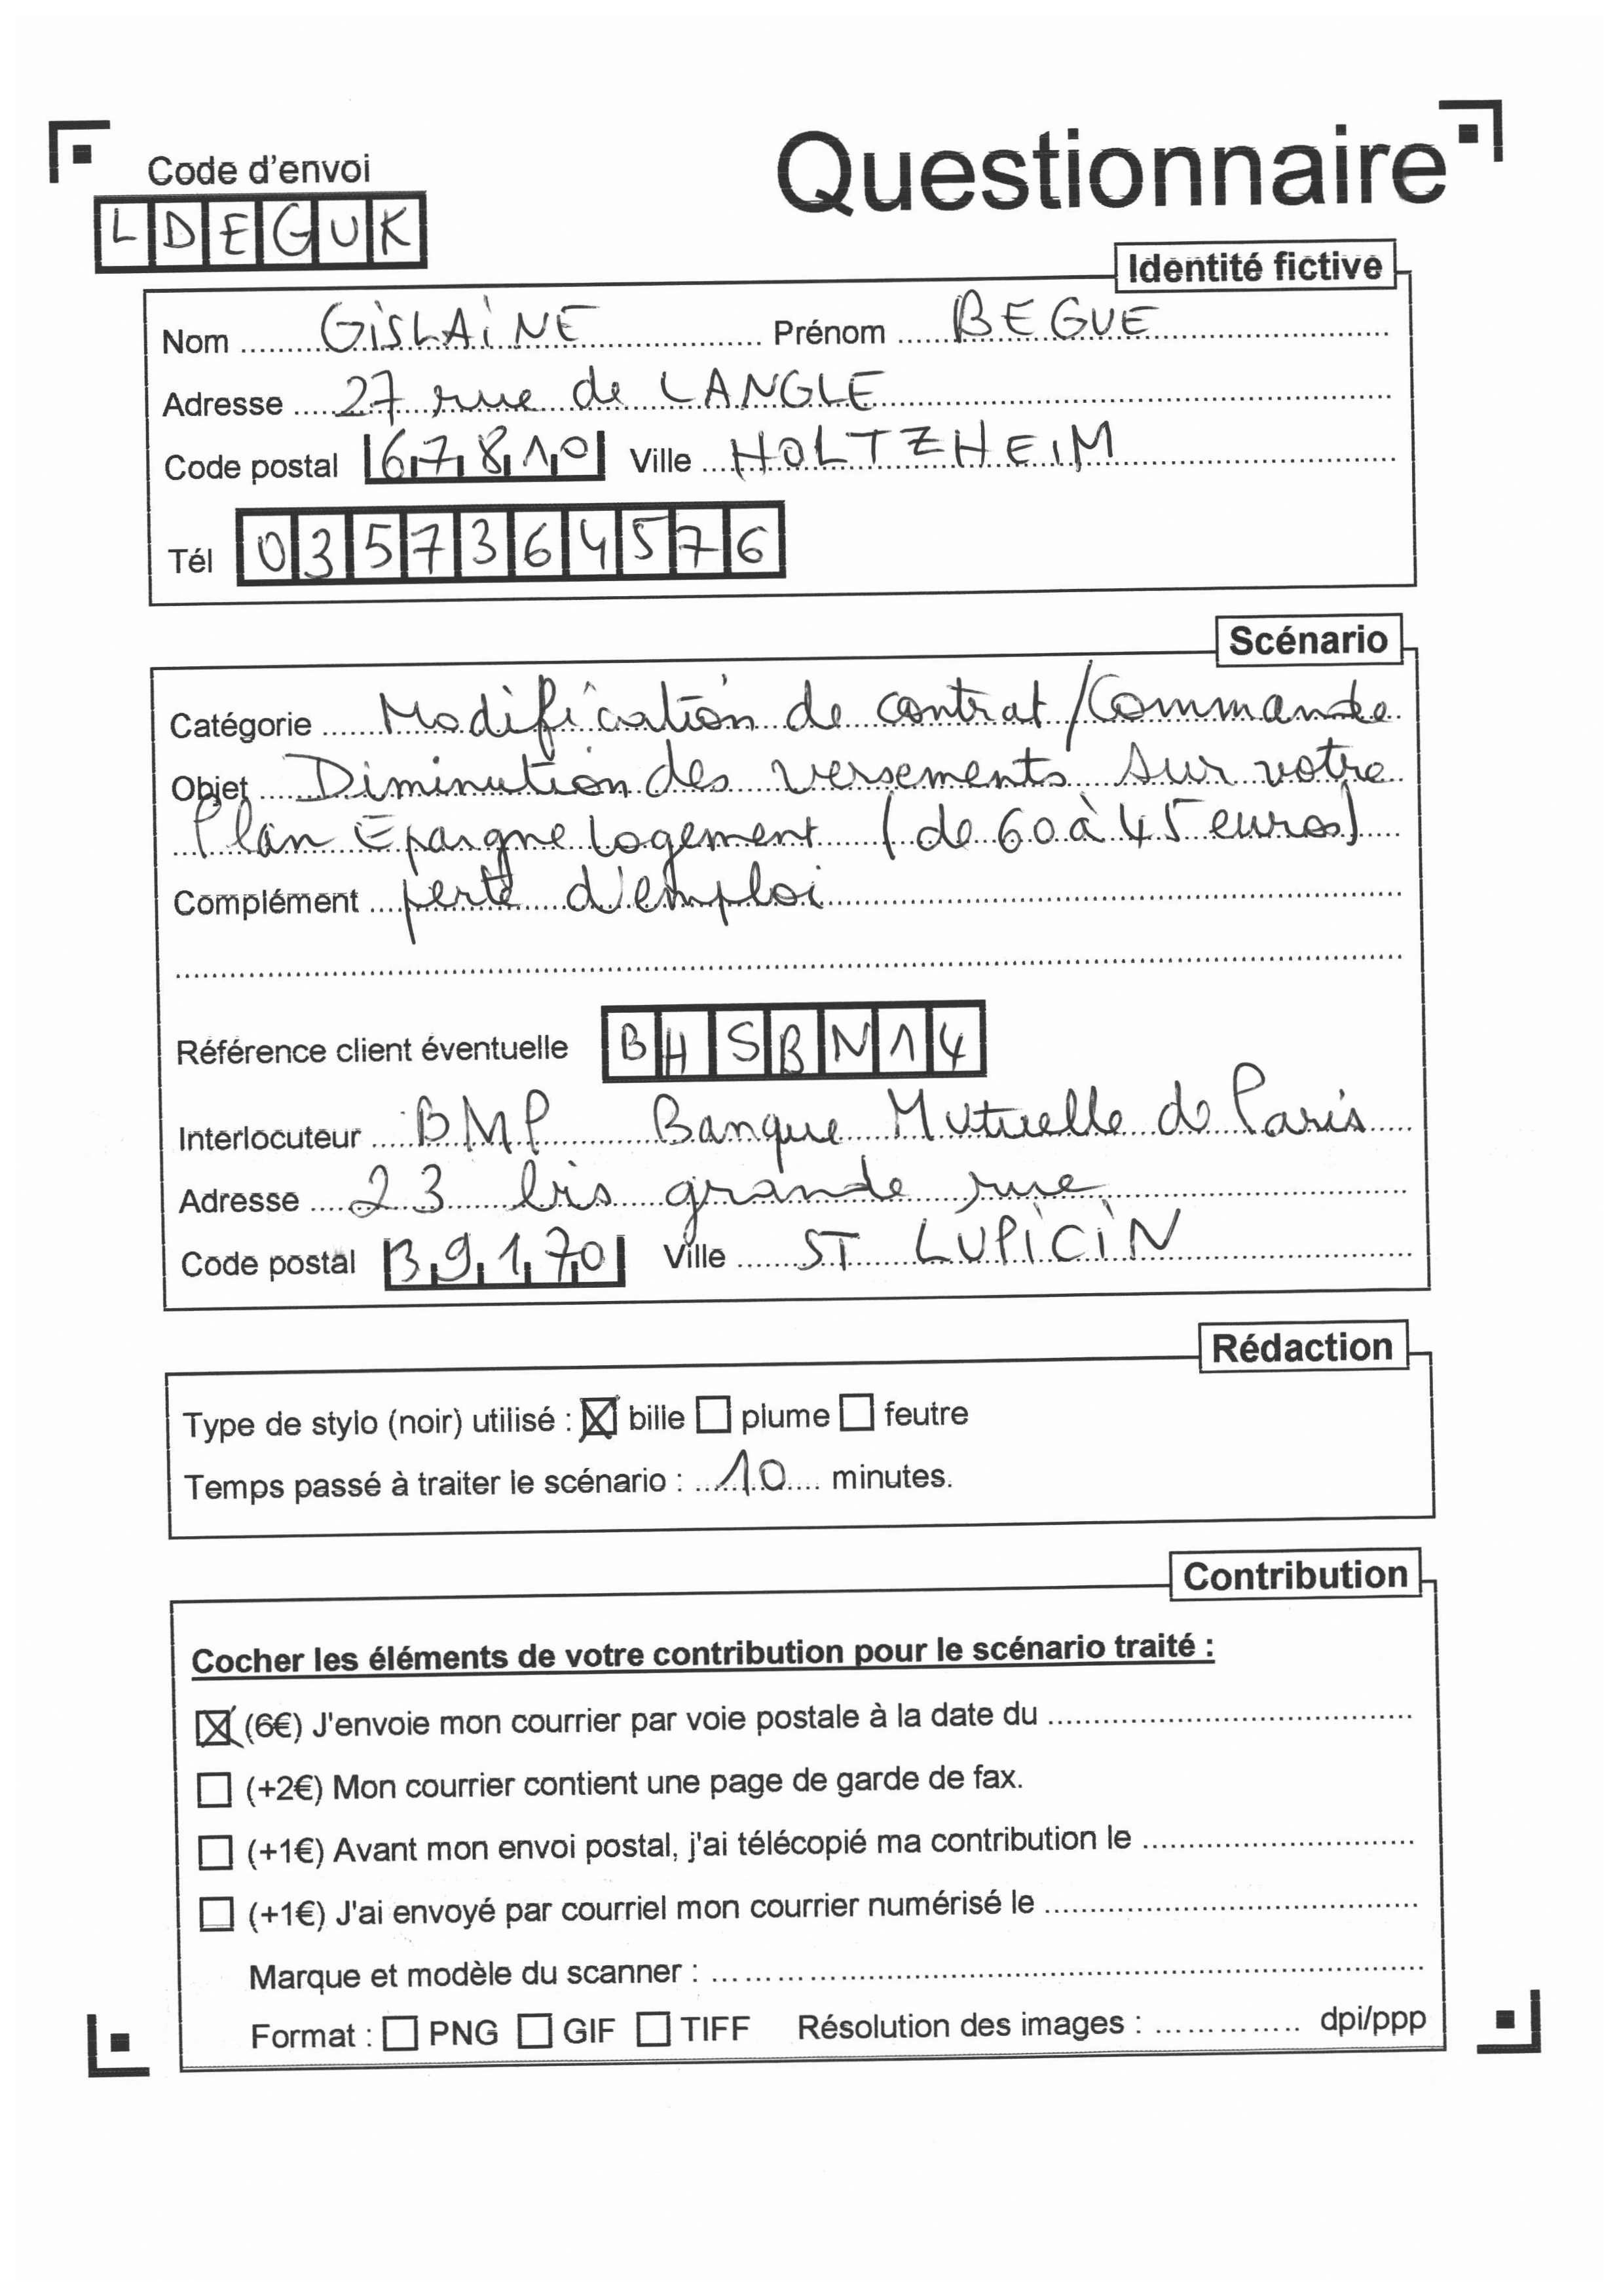 Questionnaire
Code d'envoi
LDEGUK
Identité fictive
Nom GISLAINE Prénom BEGUE
Adresse 27 rue de LANGLE
Code postal 67810 Ville HOLTZHEIM
Tél 0357364576
Scénario
Catégorie Modification de contrat / Commande
Objet Diminution des versements sur votre
Plan Epargne Logement (de 60 à 45 euros)
Complément perte d'emploi
Référence client éventuelle BHSBN14
Interlocuteur BMP Banque Mutuelle de Paris
Adresse 23 bis grande rue
Code postal 39170 Ville ST LUPICIN
Rédaction
Type de stylo (noir) utilisé : ☒ bille ☐ plume ☐ feutre
Temps passé à traiter le scénario : 10 minutes.
Contribution
Cocher les éléments de votre contribution pour le scénario traité :
☒ (6€) J'envoie mon courrier par voie postale à la date du
☐ (+2€) Mon courrier contient une page de garde de fax.
☐ (+1€) Avant mon envoi postal, j'ai télécopié ma contribution le
☐ (+1€) J'ai envoyé par courriel mon courrier numérisé le
Marque et modèle du scanner :
Format : ☐ PNG ☐ GIF ☐ TIFF Résolution des images : dpi/ppp